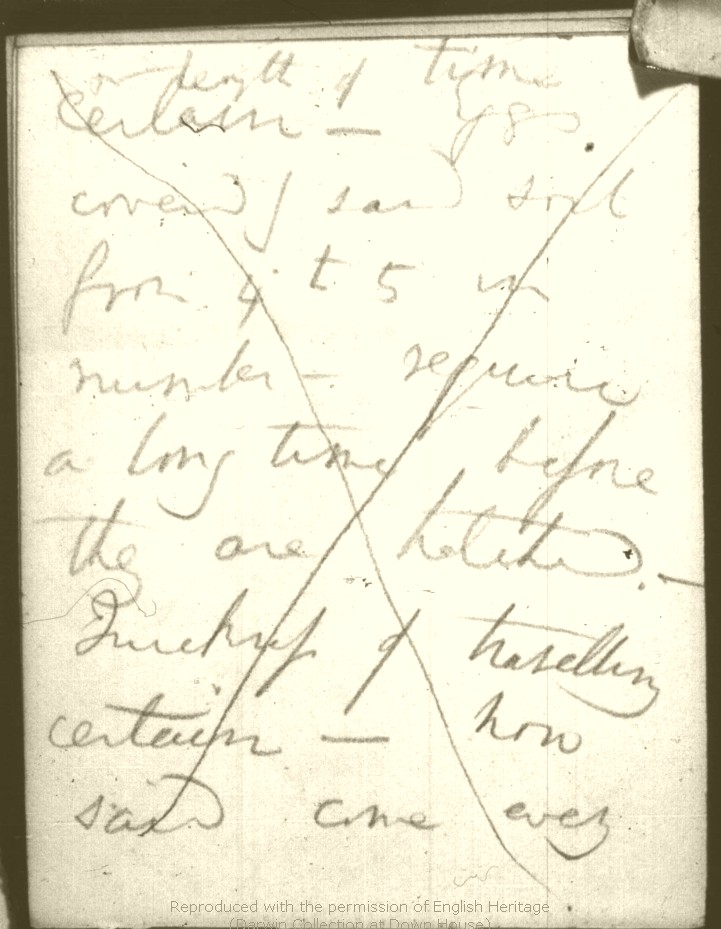 or length of time
certain — Eggs
covered / sand soil
from 4 to 5 in
number — require
a long time before
the are hatched. —
Quickness of travelling
certain — how
said come every
Reproduced with the permission of English Heritage
(Darwin Collection at Down House)